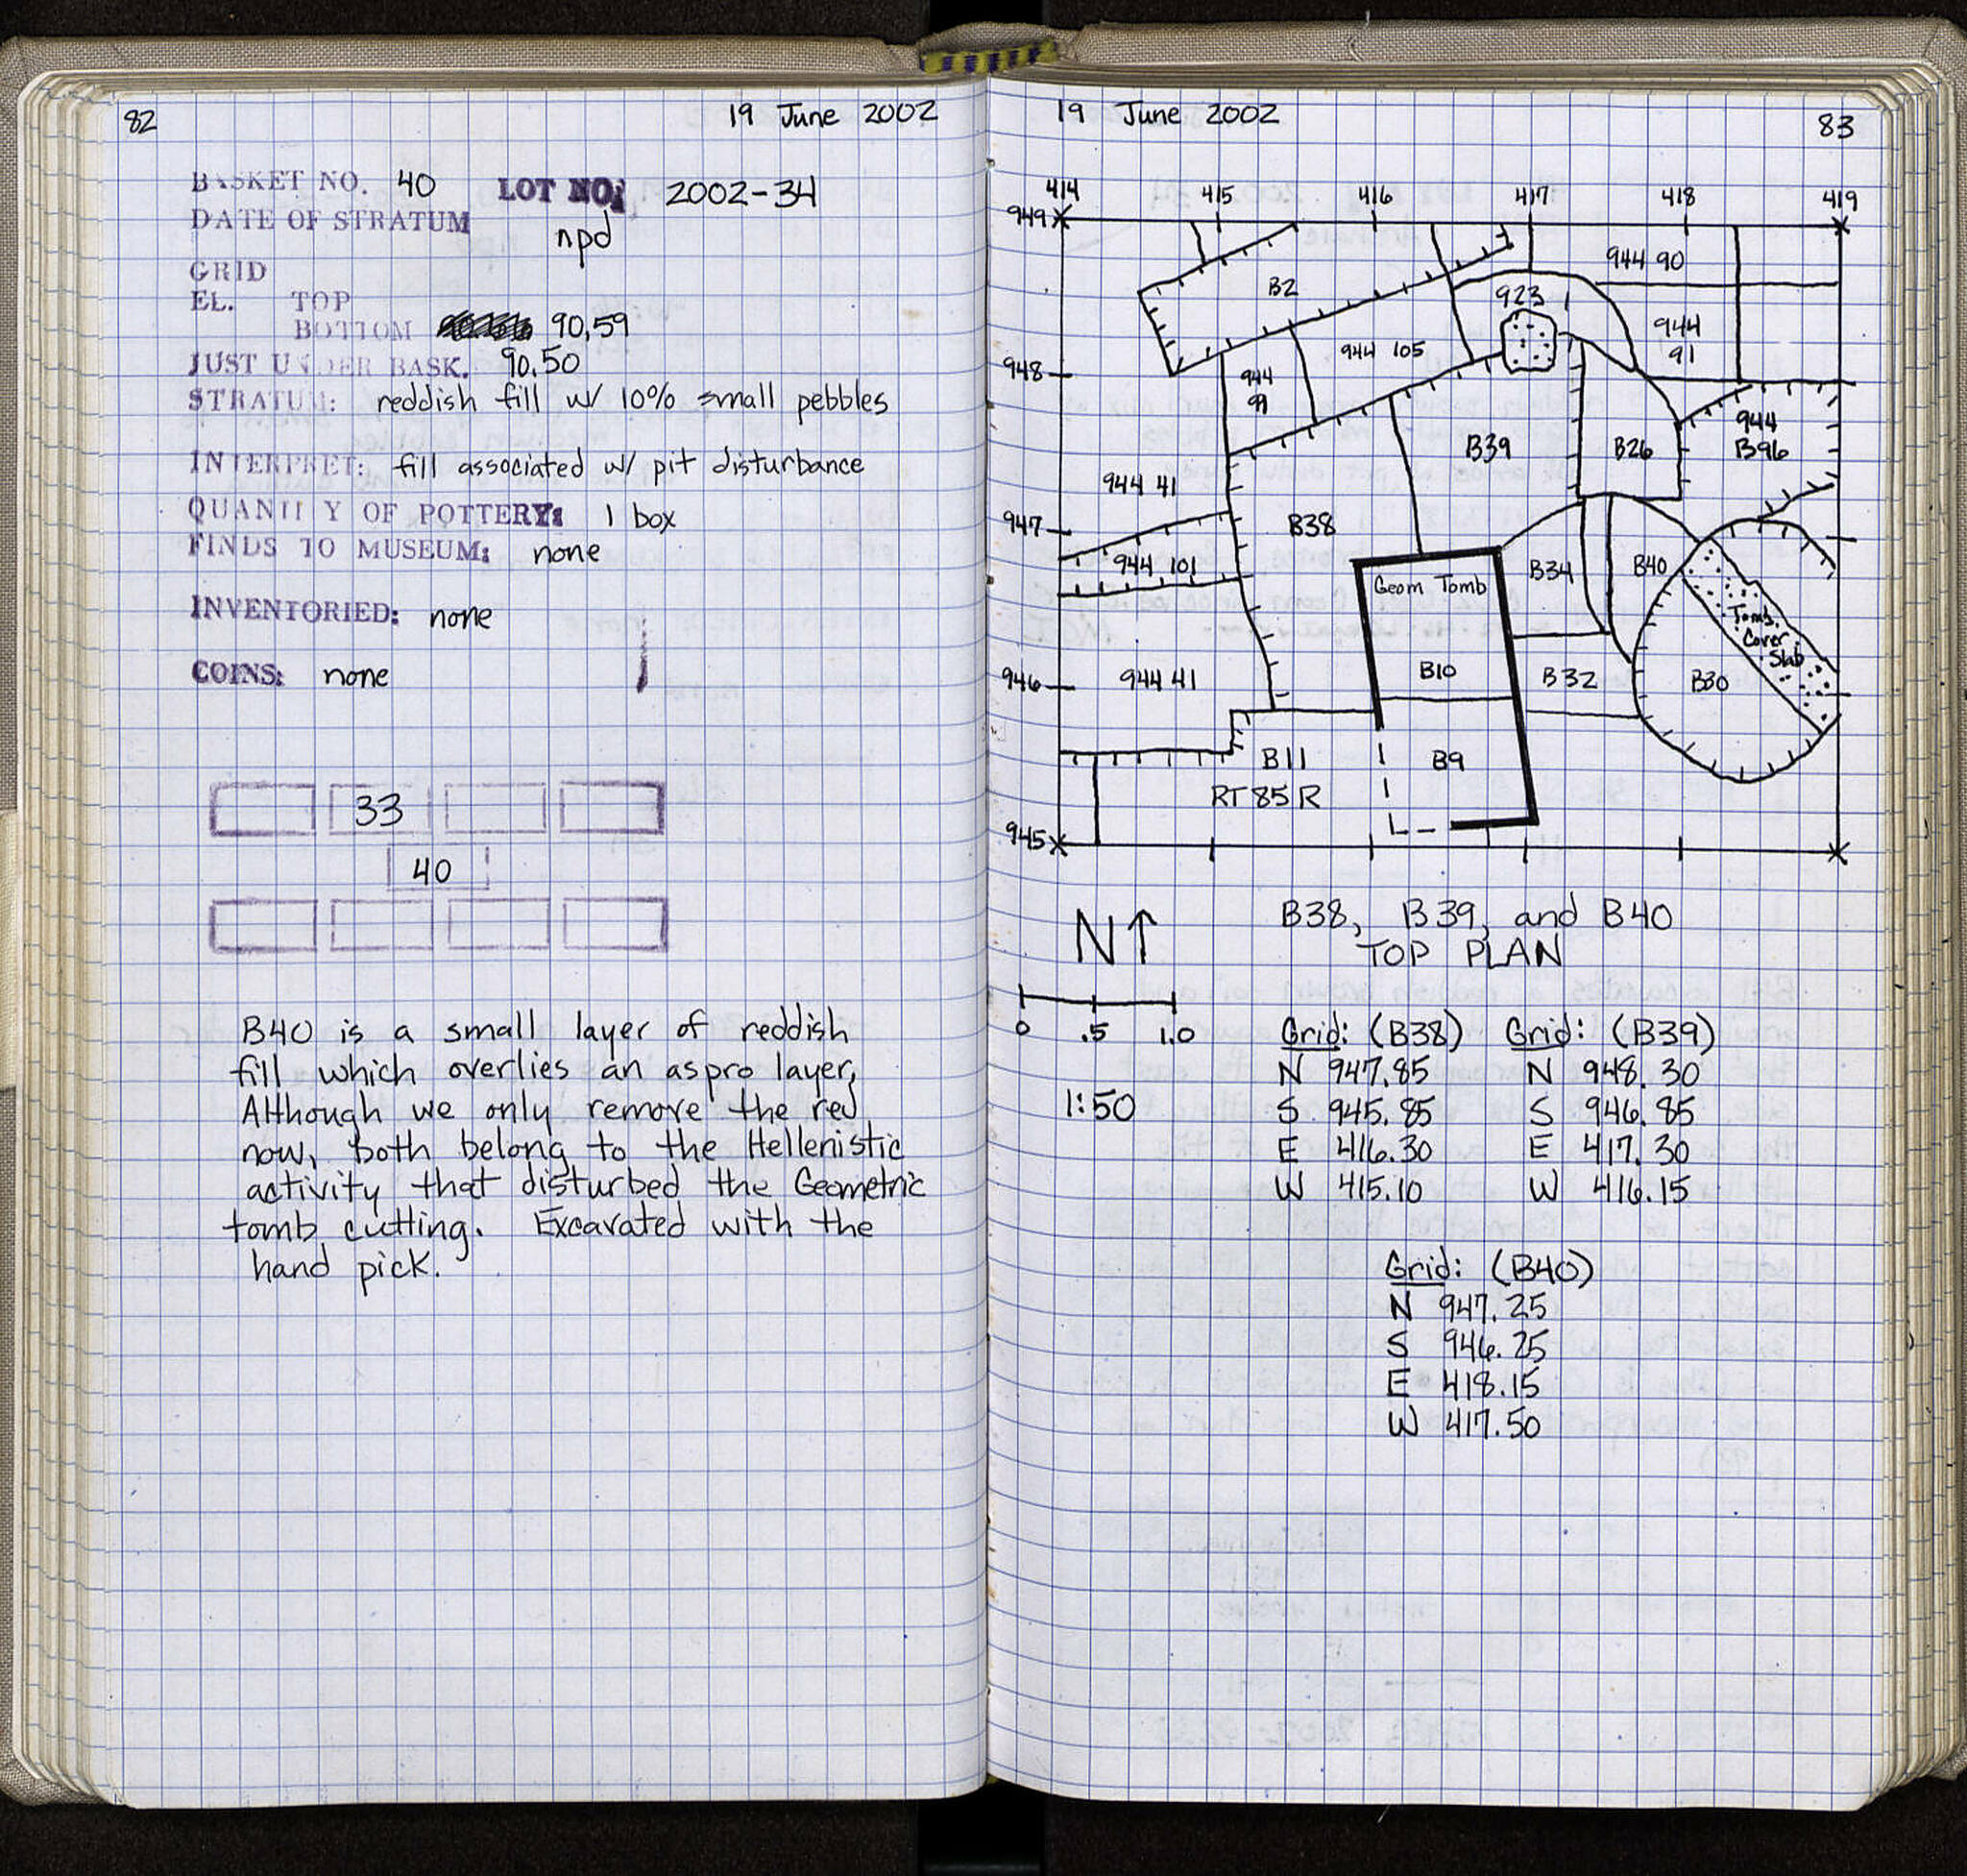 82
19 June 2002
BASKET NO. 40 LOT NO: 2002-34
DATE OF STRATUM npd
GRID
EL. TOP
BOTTOM 90.59
JUST UNDER BASK. 90.50
STRATUM: reddish fill w/ 10% small pebbles
INTERPRET: fill associated w/ pit disturbance
QUANTITY OF POTTERY: 1 box
FINDS TO MUSEUM: none
INVENTORIED: none
COINS: none
33
40
B40 is a small layer of reddish
fill which overlies an aspro layer,
Although we only remove the red
now, both belong to the Hellenistic
activity that disturbed the Geometric
tomb cutting. Excavated with the
hand pick.
19 June 2002
83
414 415 416 417 418 419
949
944 90
B2
923
944
91
944 105
948
944
99
944
B96
B39
B26
944 41
947
B38
944 101
B34
B40
Geom Tomb
Tomb
Cover
Slab
946
944 41
B10
B32
B30
B11
B9
RT 85 R
945
N↑
B38, B39, and B40
TOP PLAN
0 .5 1.0
1:50
Grid: (B38) Grid: (B39)
N 947.85 N 948.30
S 945.85 S 946.85
E 416.30 E 417.30
W 415.10 W 416.15
Grid: (B40)
N 947.25
S 946.25
E 418.15
W 417.50